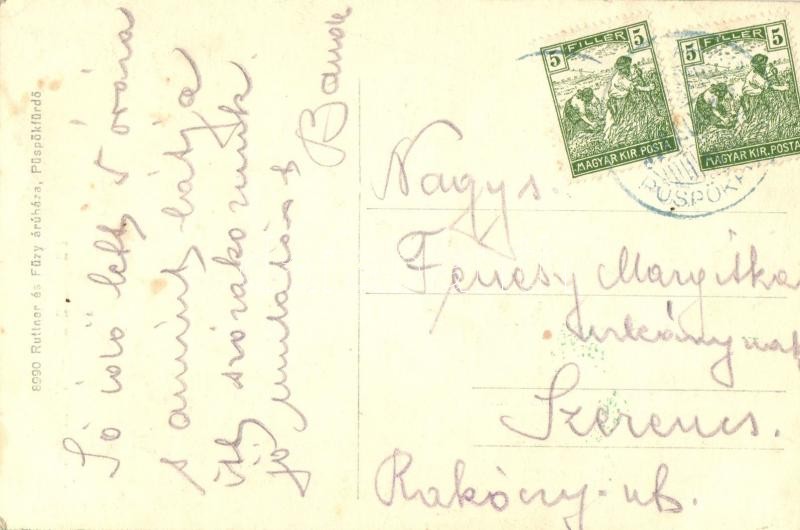 8990 Ruttner és Füzy áruháza, Püspökfürdő
Jó idő lett 5 órára
s amint látja
itt szórakozunk.
jó mulatást
Bandi
5 FILLÉR 5
MAGYAR KIR. POSTA
5 FILLÉR 5
MAGYAR KIR. POSTA
PÜSPÖKF
Nagys.
Margitka
urleánynak
Szerencs.
Rakóczy-ut.